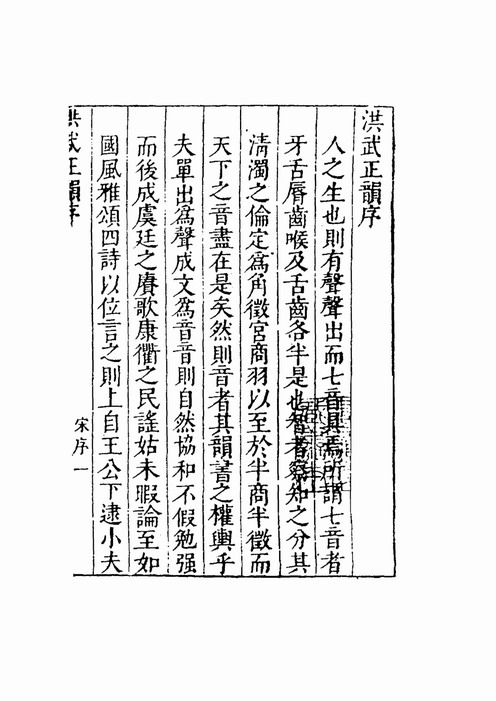 洪武正韻序
人之生也則有聲聲出而七音具焉所謂七音者
牙舌脣齒喉及舌齒各半是也智者察知之分其
淸濁之倫定爲角徵宫商羽以至於半商半徵而
天下之音盡在是矣然則音者其韻書之權輿乎
夫單出爲聲成文爲音音則自然協和不假勉强
而後成虞廷之賡歌康衢之民謠姑未暇論至如
國風雅頌四詩以位言之則上自王公下逮小夫
洪武正韻序
宋序一